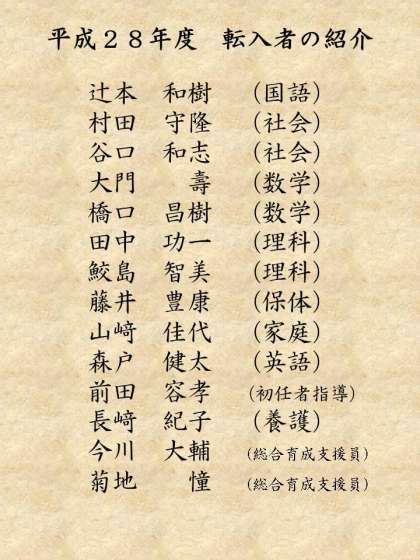 平成２８年度　転入者の紹介
辻本　和樹　（国語）
村田　守隆　（社会）
谷口　和志　（社会）
大門　　壽　（数学）
橋口　昌樹　（数学）
田中　功一　（理科）
鮫島　智美　（理科）
藤井　豊康　（保体）
山﨑　佳代　（家庭）
森戸　健太　（英語）
前田　容孝　（初任者指導）
長﨑　紀子　（養護）
今川　大輔　（総合育成支援員）
菊地　　憧　（総合育成支援員）